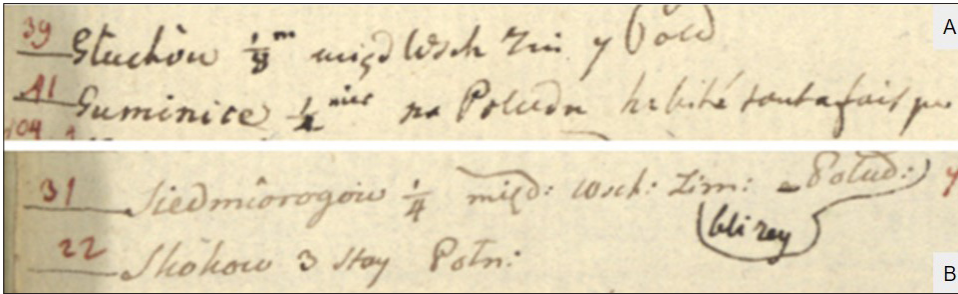 39 Głuchòw 1/8 m międ Wsch Zim y Połd
A
41 Guminice 1/2 mier na Połudn habité toutafait pu
104
31 Siedmiorogòw 1/4 międ: wsch: Zim: Połud: y
bli zey
22 Skòkow 3 stay Połn:
B